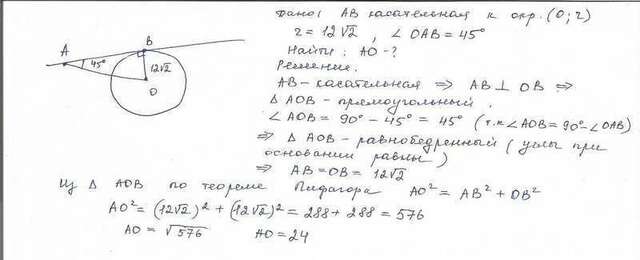 Дано: AB касательная к окр. (O; r)
r = 12√2, ∠ OAB = 45°
Найти: AO - ?
Решение.
A
B
45°
12√2
O
AB - касательная ⇒ AB ⊥ OB ⇒
△ AOB - прямоугольный.
∠ AOB = 90° - 45° = 45° (т.к ∠AOB = 90° - ∠OAB)
⇒ △ AOB - равнобедренный (углы при
основании равны)
⇒ AB = OB = 12√2
Из △ AOB по теореме Пифагора AO² = AB² + OB²
AO² = (12√2)² + (12√2)² = 288 + 288 = 576
AO = √576 AO = 24